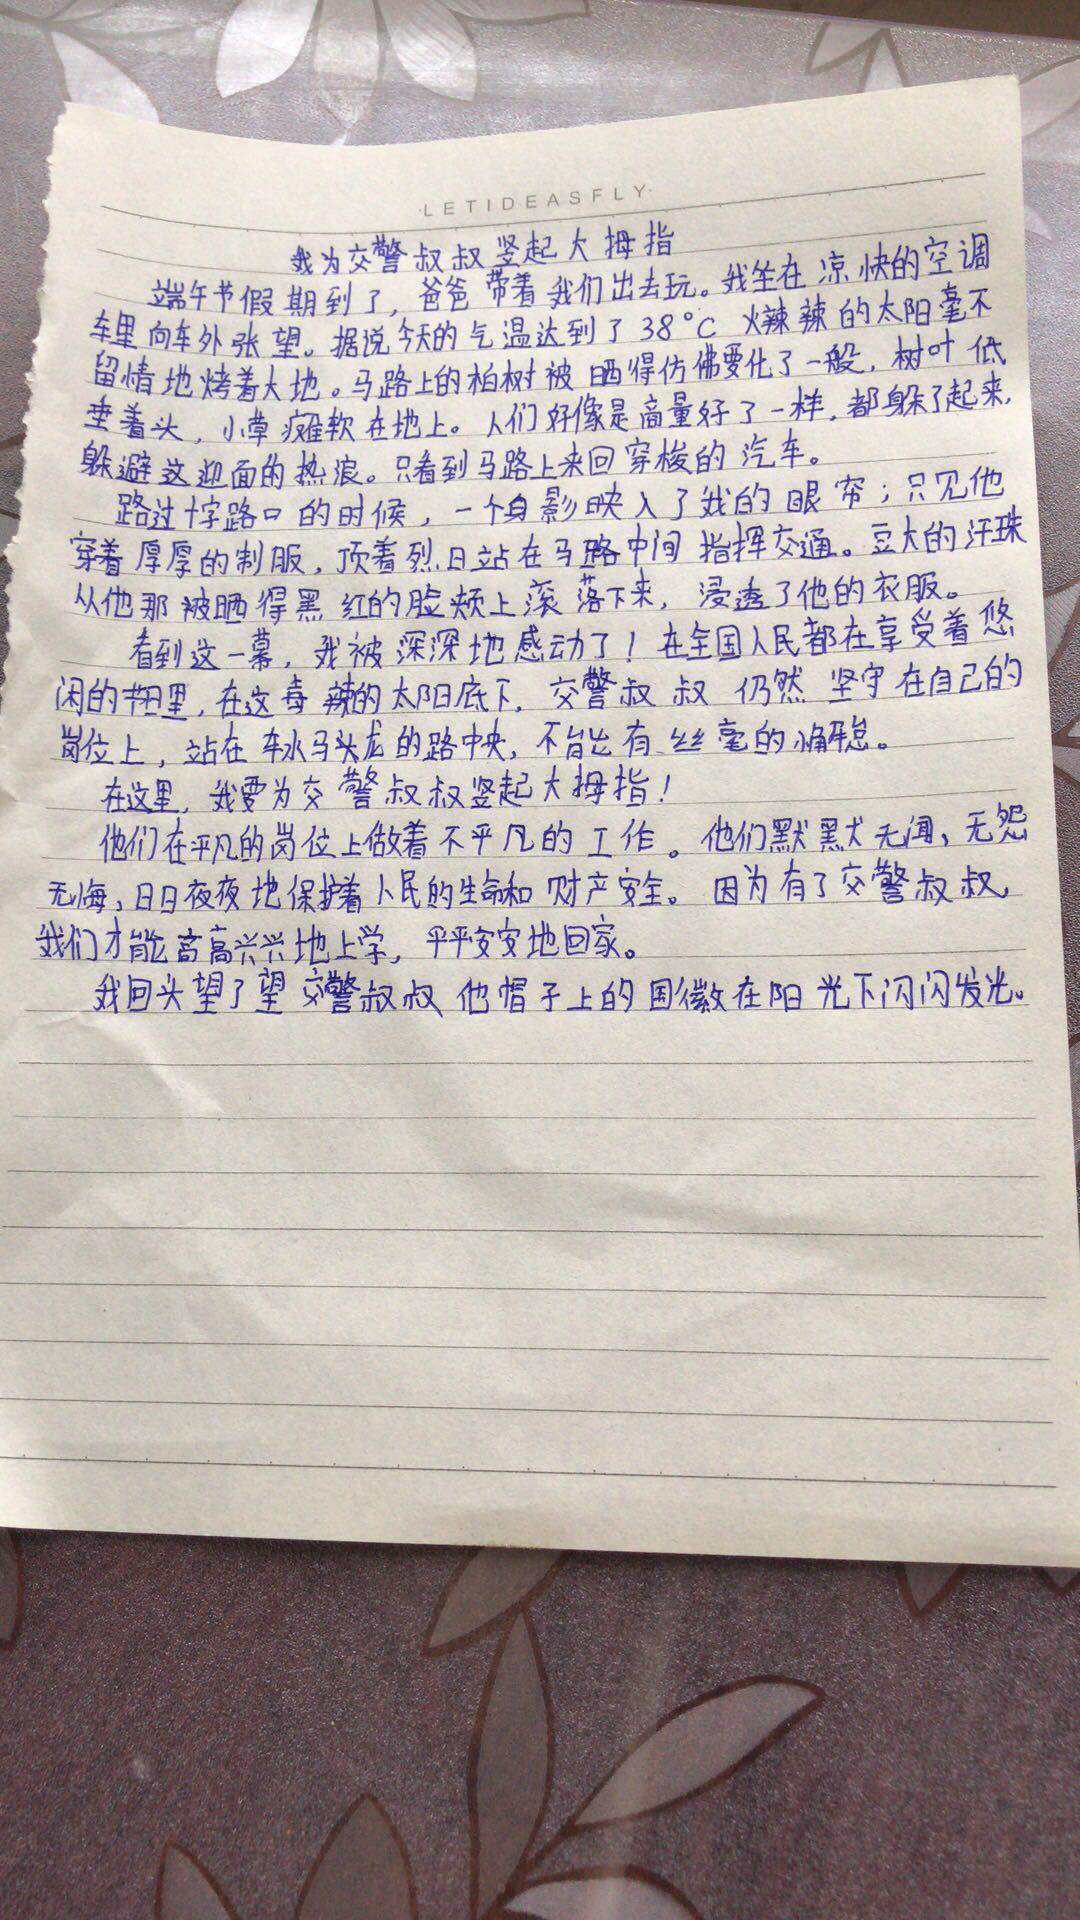 LETIDEASFLY
我为交警叔叔竖起大拇指
端午节假期到了，爸爸带着我们出去玩。我坐在凉快的空调
车里向车外张望。据说今天的气温达到了38°C 火辣辣的太阳毫不
留情地烤着大地。马路上的柏树被晒得仿佛要化了一般，树叶低
垂着头，小草瘫软在地上。人们好像是商量好了一样，都躲了起来，
躲避这迎面的热浪。只看到马路上来回穿梭的汽车。
路过十字路口的时候，一个身影映入了我的眼帘；只见他
穿着厚厚的制服，顶着烈日站在马路中间指挥交通。豆大的汗珠
从他那被晒得黑红的脸颊上滚落下来，浸透了他的衣服。
看到这一幕，我被深深地感动了！在全国人民都在享受着悠
闲的节日里，在这毒辣的太阳底下，交警叔叔仍然坚守在自己的
岗位上，站在车水马龙的路中央，不能有丝毫的懈怠。
在这里，我要为交警叔叔竖起大拇指！
他们在平凡的岗位上做着不平凡的工作。他们默默无闻、无怨
无悔，日日夜夜地保护着人民的生命和财产安全。因为有了交警叔叔，
我们才能高高兴兴地上学，平平安安地回家。
我回头望了望交警叔叔，他帽子上的国徽在阳光下闪闪发光。